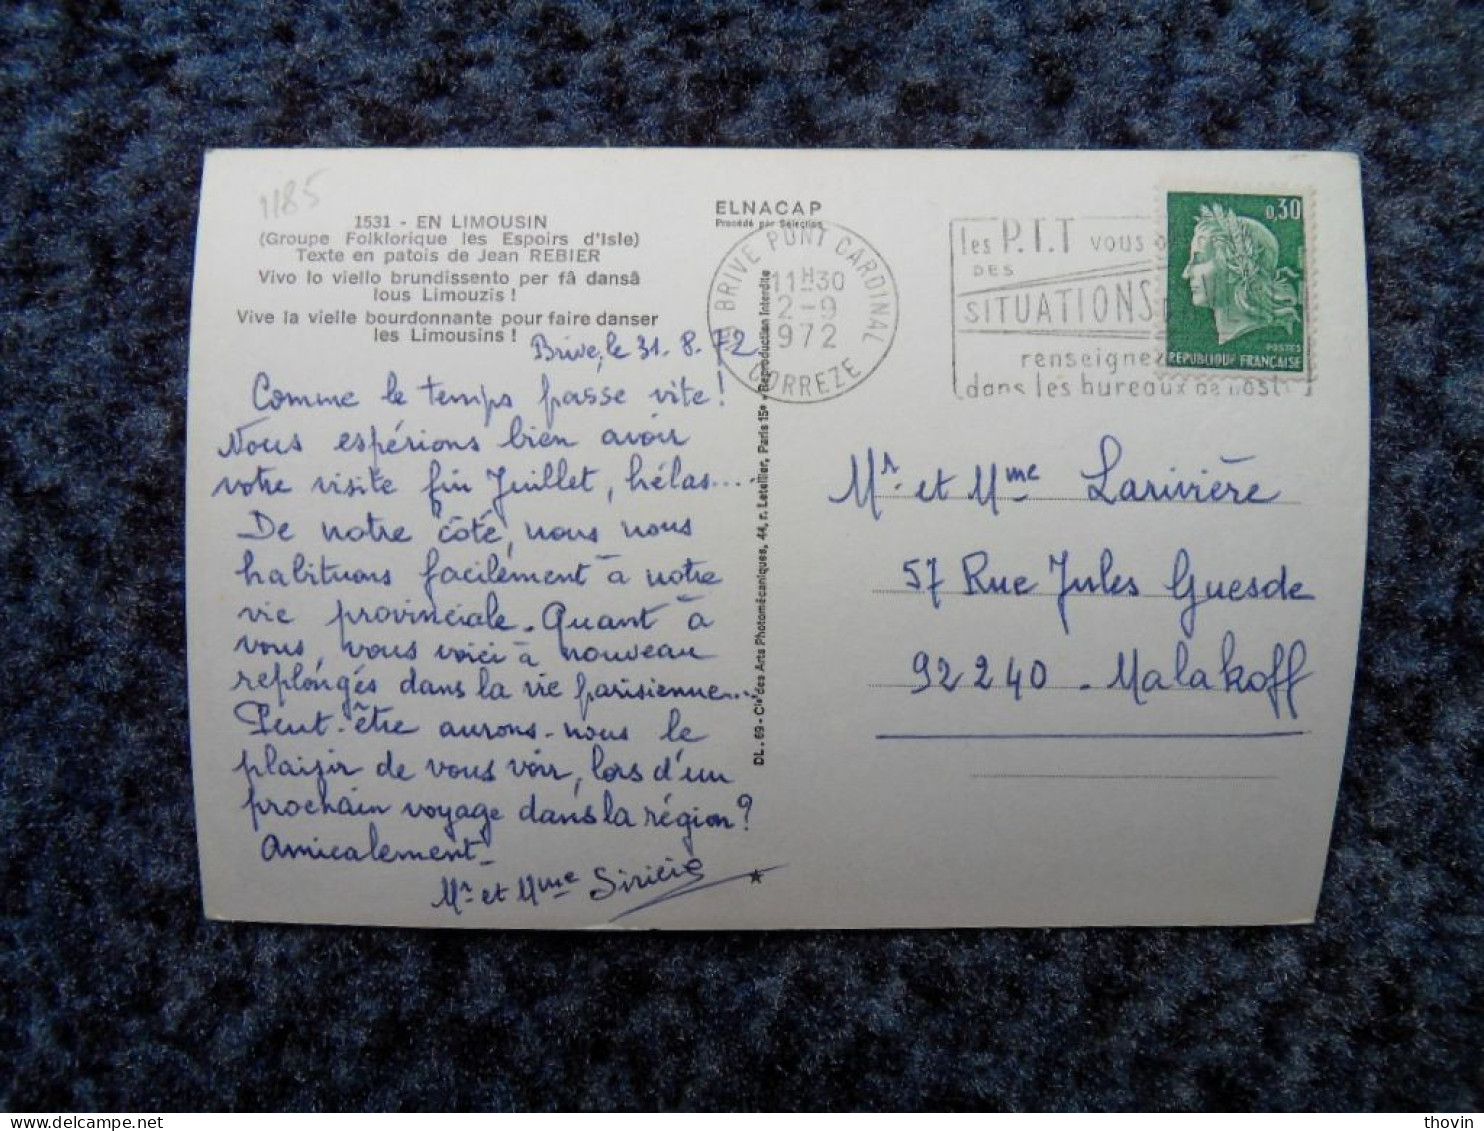 1185
1531 - EN LIMOUSIN
(Groupe Folklorique les Espoirs d'Isle)
Texte en patois de Jean REBIER
Vivo lo viello brundissento per fâ dansâ
lous Limouzis !
Vive la vielle bourdonnante pour faire danser
les Limousins !
Brive, le 31. 8. 72
Comme le temps passe vite !
Nous espérions bien avoir
votre visite fin Juillet, hélas....
De notre côté, nous nous
habituons facilement à notre
vie provinciale. Quant à
vous, vous voici à nouveau
replongés dans la vie parisienne...
Peut-être aurons-nous le
plaisir de vous voir, lors d'un
prochain voyage dans la région ?
Amicalement.
Mr et Mme
ELNACAP
Procédé par Sélection
DL. 69 - Cie des Arts Photomécaniques, 44, r. Letellier, Paris 15e - Reproduction interdite
BRIVE PONT CARDINAL
11H30
2-9
972
CORREZE
les P.T.T vous o
DES
SITUATIONS
renseignez
dans les bureaux de poste
0,30
POSTES
REPUBLIQUE FRANÇAISE
Mr. et Mme Larivière
57 Rue Jules Guesde
92240 - Malakoff
thovin